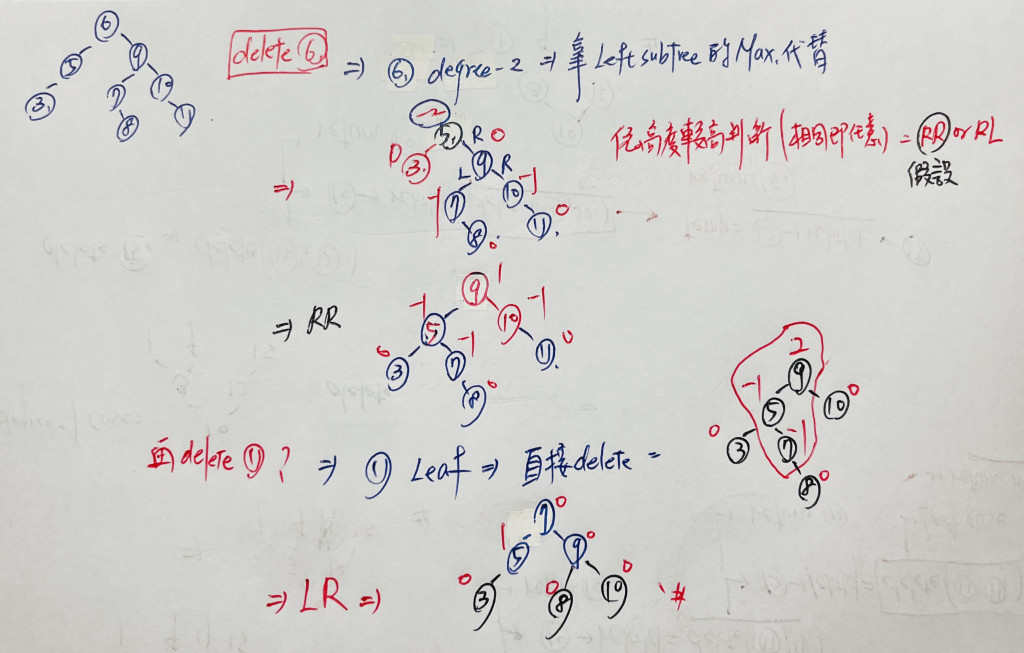 6
5 9
3 7 10
8 11
delete ⑥ ⇒ ⑥ degree-2 ⇒ 拿 Left subtree 的 Max. 代替
-2
5 R 0
0 3 L 9 R
-1 7 10 -1
8 0 11 0
⇒
往高度較高判斷 (相同即任意) = RR or RL
假設
⇒ RR
9 1
-1 5 10 -1
0 3 7 -1 11 0
8 0
再 delete ⑪ ? ⇒ ⑪ Leaf ⇒ 直接 delete =
2
9
-1 5 10 0
0 3 7 -1
8 0
⇒ LR ⇒
7 0
1 5 9 0
0 3 0 8 10 0 #